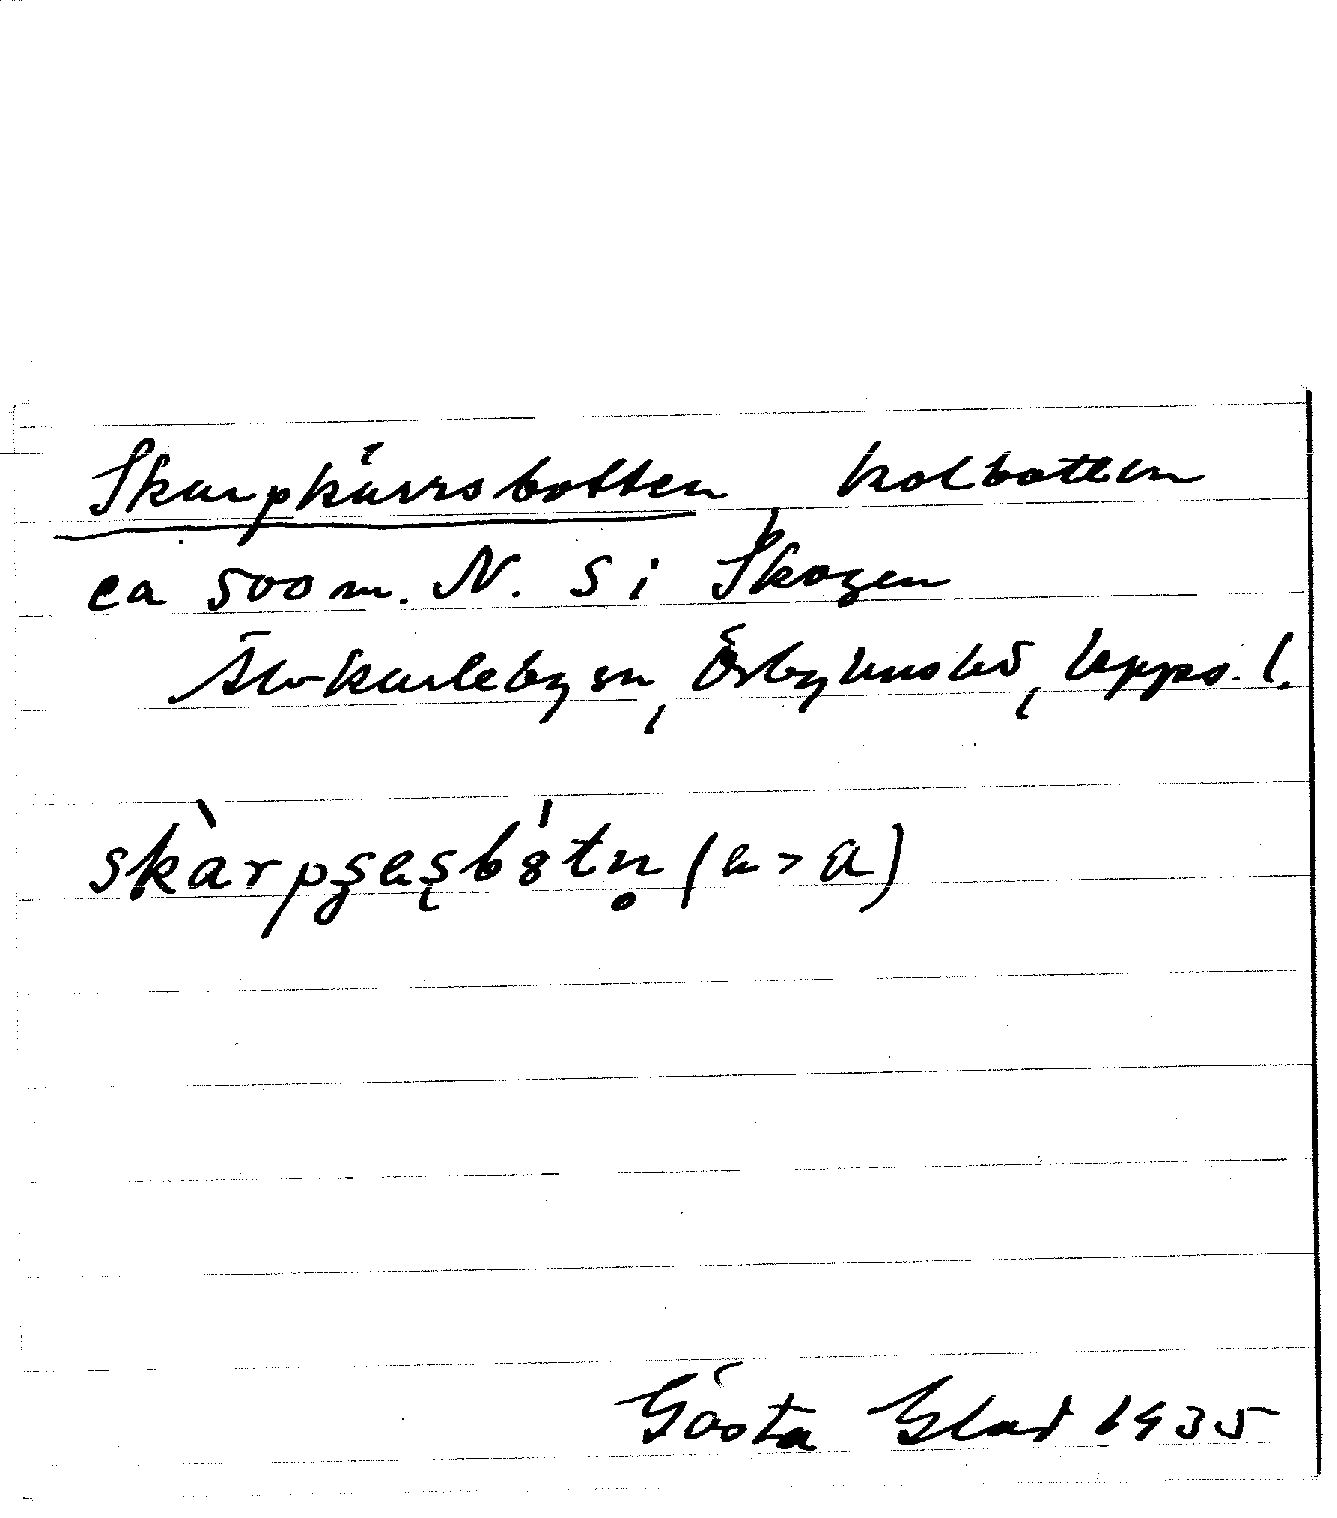 Skarpkärrsbotten kolbotten
ca 500 m. N. 5 i Skogen
Älvkarleby sn, Örbyhus hd, Upps. l.
skàrpʂæʂbótn̥ (æ > a)
Gösta Glad 1935